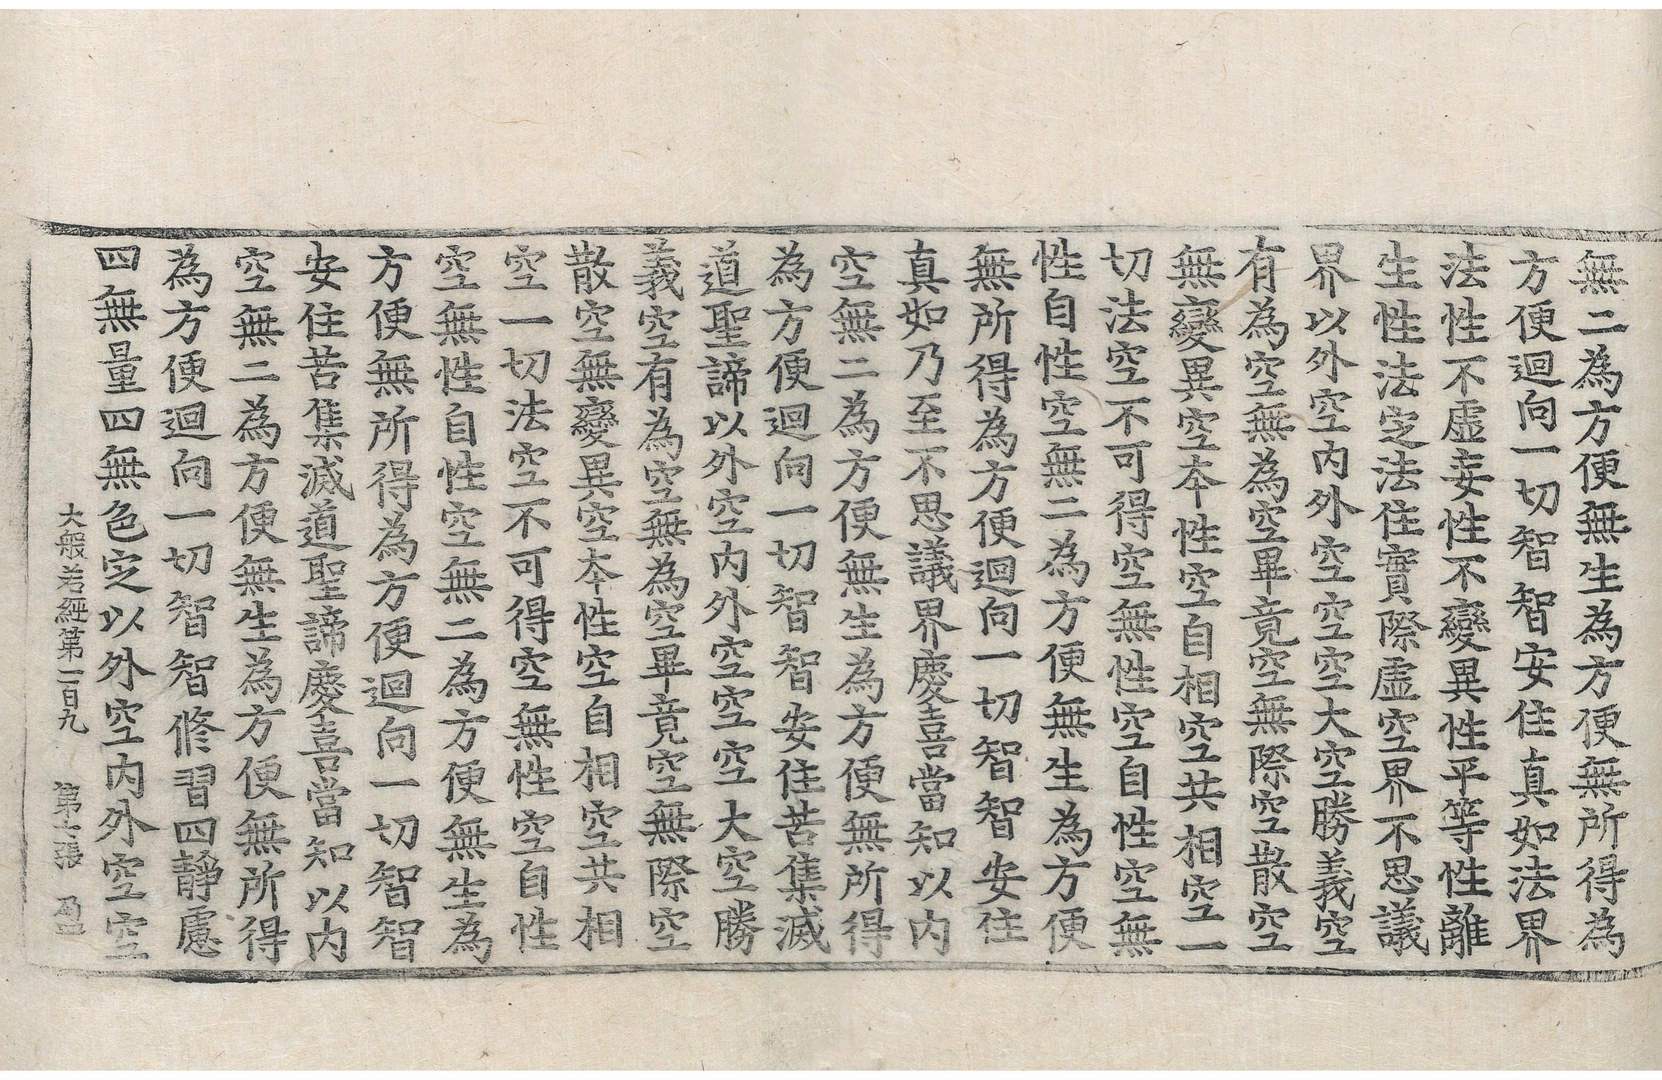 無二為方便無生為方便無所得為
方便迴向一切智智安住真如法界
法性不虛妄性不變異性平等性離
生性法定法住實際虛空界不思議
界以外空内外空空空大空勝義空
有為空無為空畢竟空無際空散空
無變異空本性空自相空共相空一
切法空不可得空無性空自性空無
性自性空無二為方便無生為方便
無所得為方便迴向一切智智安住
真如乃至不思議界慶喜當知以内
空無二為方便無生為方便無所得
為方便迴向一切智智安住苦集滅
道聖諦以外空内外空空空大空勝
義空有為空無為空畢竟空無際空
散空無變異空本性空自相空共相
空一切法空不可得空無性空自性
空無性自性空無二為方便無生為
方便無所得為方便迴向一切智智
安住苦集滅道聖諦慶喜當知以内
空無二為方便無生為方便無所得
為方便迴向一切智智修習四靜慮
四無量四無色定以外空内外空空
大般若經第一百九 第張 盈